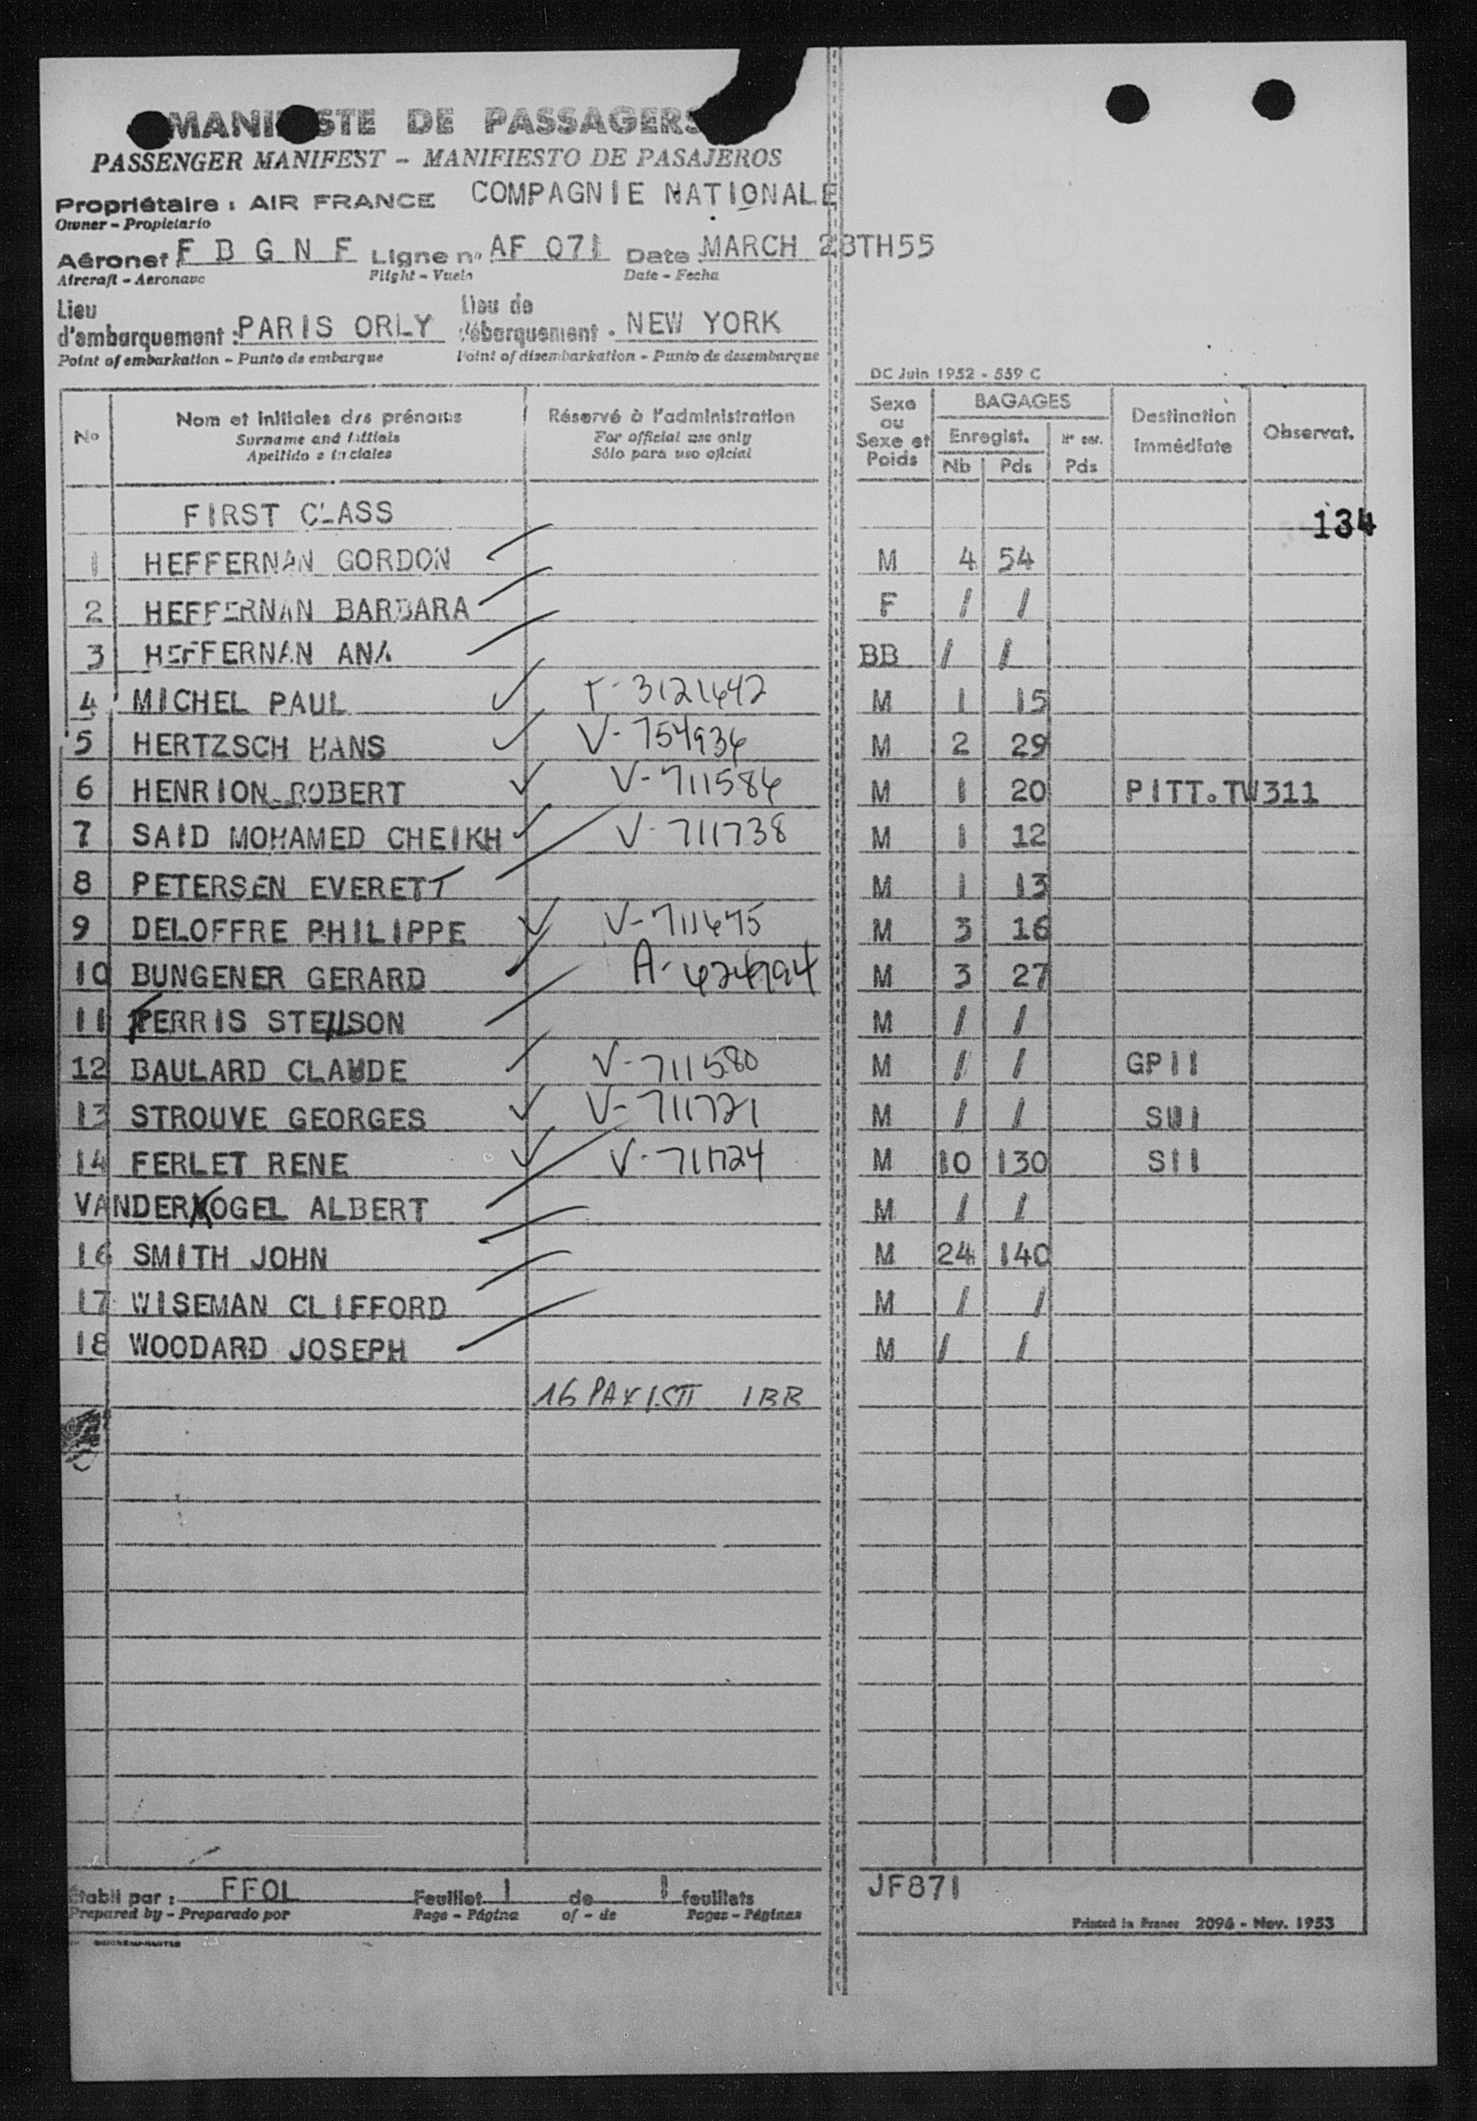 MANIFESTE DE PASSAGERS
PASSENGER MANIFEST - MANIFIESTO DE PASAJEROS
Propriétaire : AIR FRANCE COMPAGNIE NATIONALE
Owner - Propietario
Aéronef F B G N F Ligne n° AF 071 Date MARCH 28TH55
Aircraft - Aeronave Flight - Vuelo Date - Fecha
Lieu d'embarquement : PARIS ORLY Lieu de débarquement . NEW YORK
Point of embarkation - Punto de embarque Point of disembarkation - Punto de desembarque
DC Juin 1952 - 559 C
No Nom et initiales des prénoms Réservé à l'administration Sexe ou Sexe et Poids BAGAGES Destination immédiate Observat.
Surname and initials For official use only Enregist.
Apellido e iniciales Sólo para uso oficial Nb Pds Pds
FIRST CLASS 134
1 HEFFERNAN GORDON M 4 54
2 HEFFERNAN BARBARA F / /
3 HEFFERNAN ANA BB / /
4 MICHEL PAUL T-3121642 M 1 15
5 HERTZSCH HANS V-754936 M 2 29
6 HENRION ROBERT V-711586 M 1 20 PITT.TW311
7 SAID MOHAMED CHEIKH V-711738 M 1 12
8 PETERSEN EVERETT M 1 13
9 DELOFFRE PHILIPPE V-711675 M 3 16
10 BUNGENER GERARD A-624794 M 3 27
11 FERRIS STELLSON M / /
12 BAULARD CLAUDE V-711580 M / / GP11
13 STROUVE GEORGES V-711721 M / / S11
14 FERLET RENE V-711724 M 10 130 S11
VANDERKOGEL ALBERT M / /
16 SMITH JOHN M 24 140
17 WISEMAN CLIFFORD M / /
18 WOODARD JOSEPH M / /
16 PAX 1 BB
Établi par : FFOL Feuillet 1 de 1 feuillets JF871
Prepared by - Preparado por Page - Página of - de Pages - Páginas
Printed in France 2096 - Nov. 1953